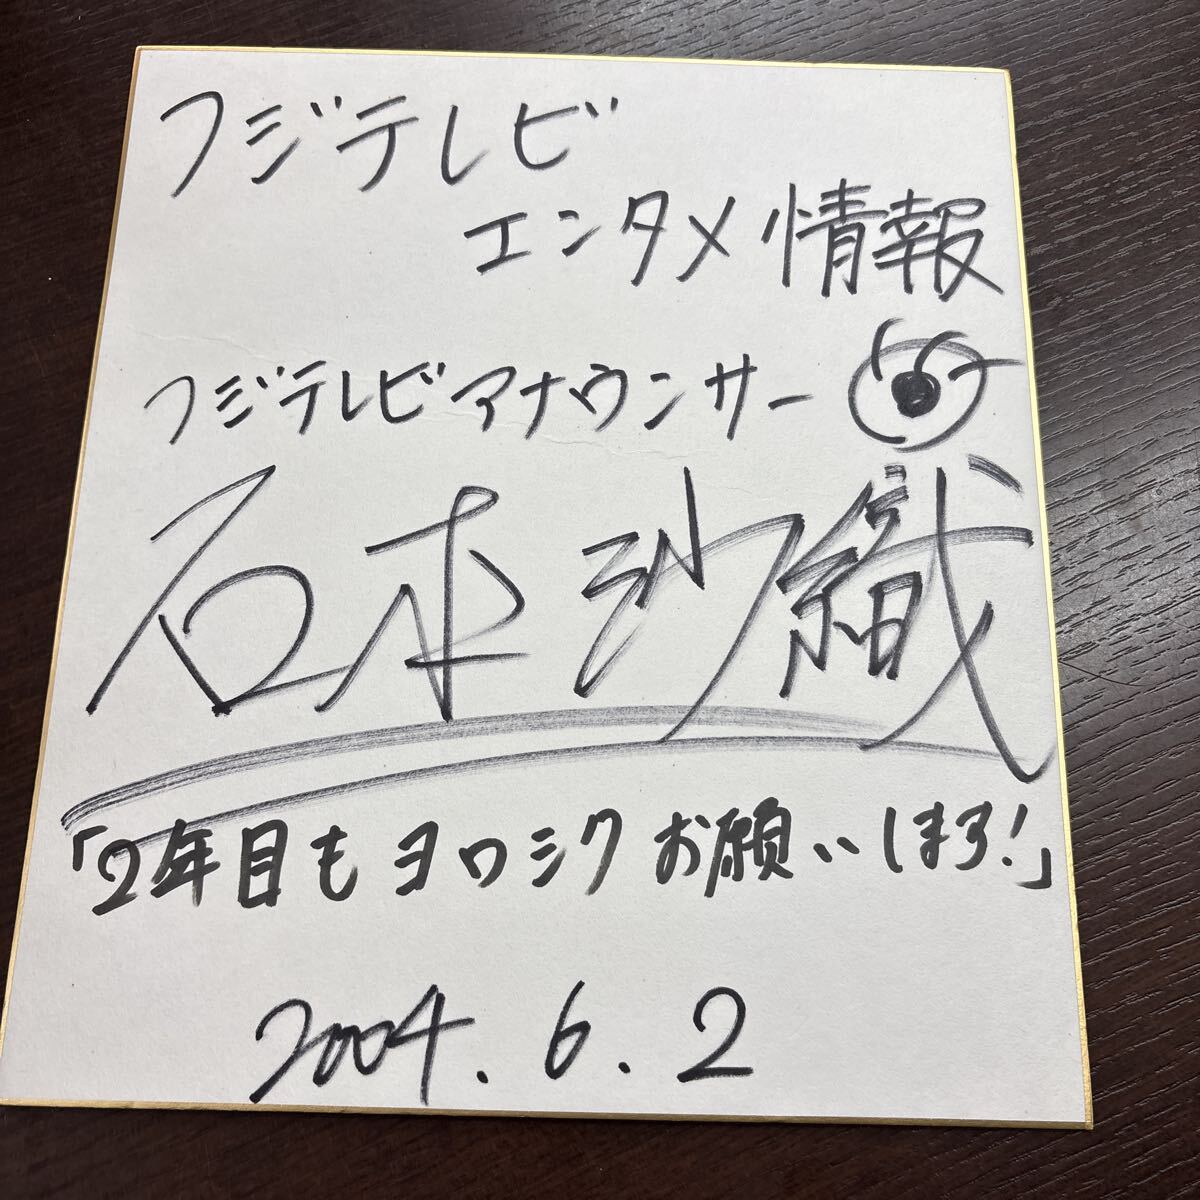 フジテレビ
エンタメ情報
フジテレビアナウンサー
石本沙織
「2年目もヨロシクお願いします!」
2004.6.2